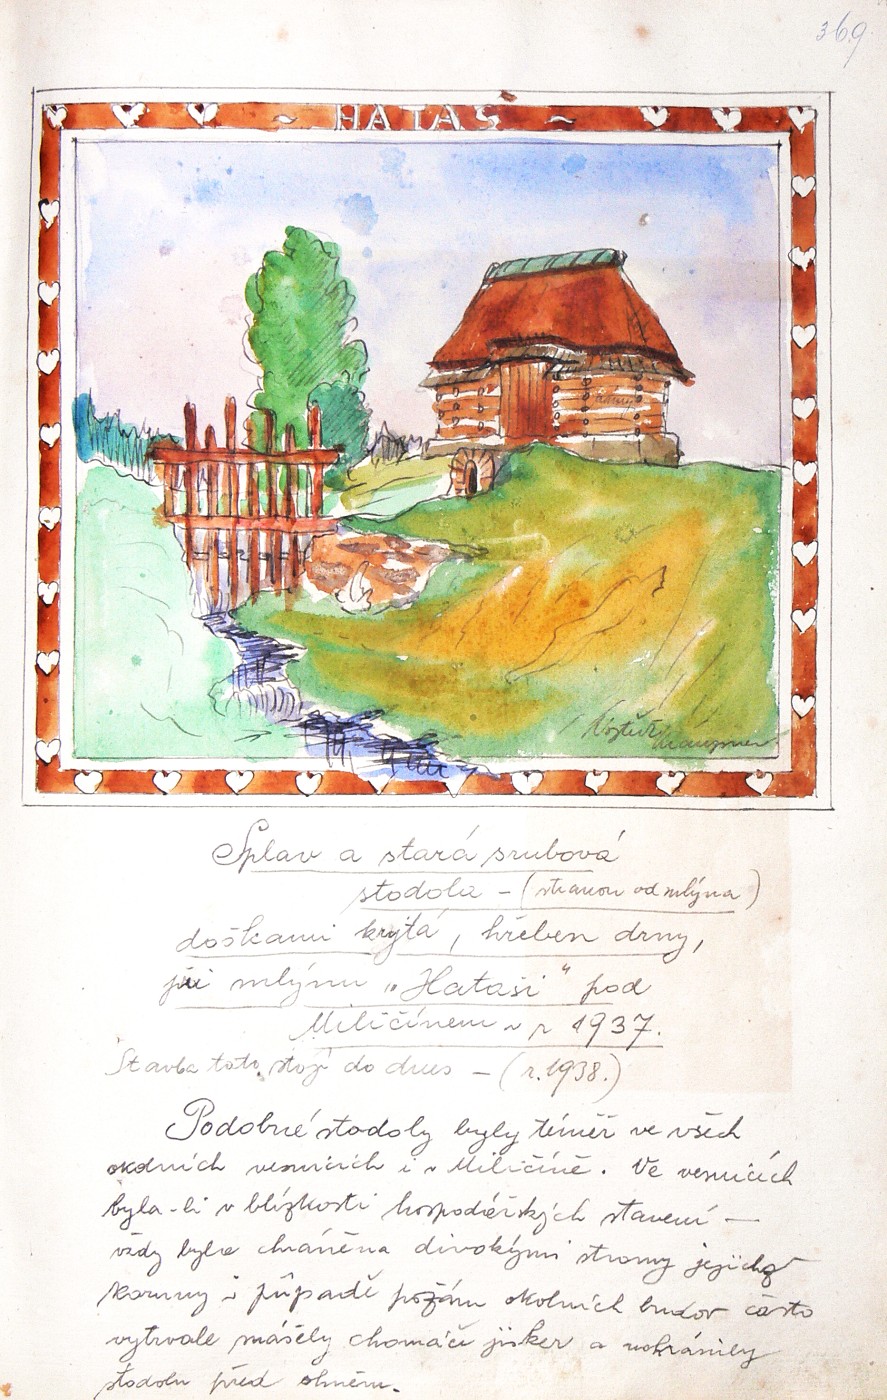 369
~ HATAS ~
Splav a stará srubová
stodola – (stranou od mlýna)
doškami krytá, hřeben drny,
při mlýnu „Hataši“ pod
Miličínem v r 1937.
Stavba tato stojí do dnes – (r. 1938.)
Podobné stodoly byly téměř ve všech
okolních vesnicích i v Miličíně. Ve vesnicích
byla-li v blízkosti hospodářských stavení —
vždy byla chráněna divokými stromy jejichž
koruny v případě požáru okolních budov často
vytrvale snášely chomáče jisker a uchránily
stodolu před ohněm.